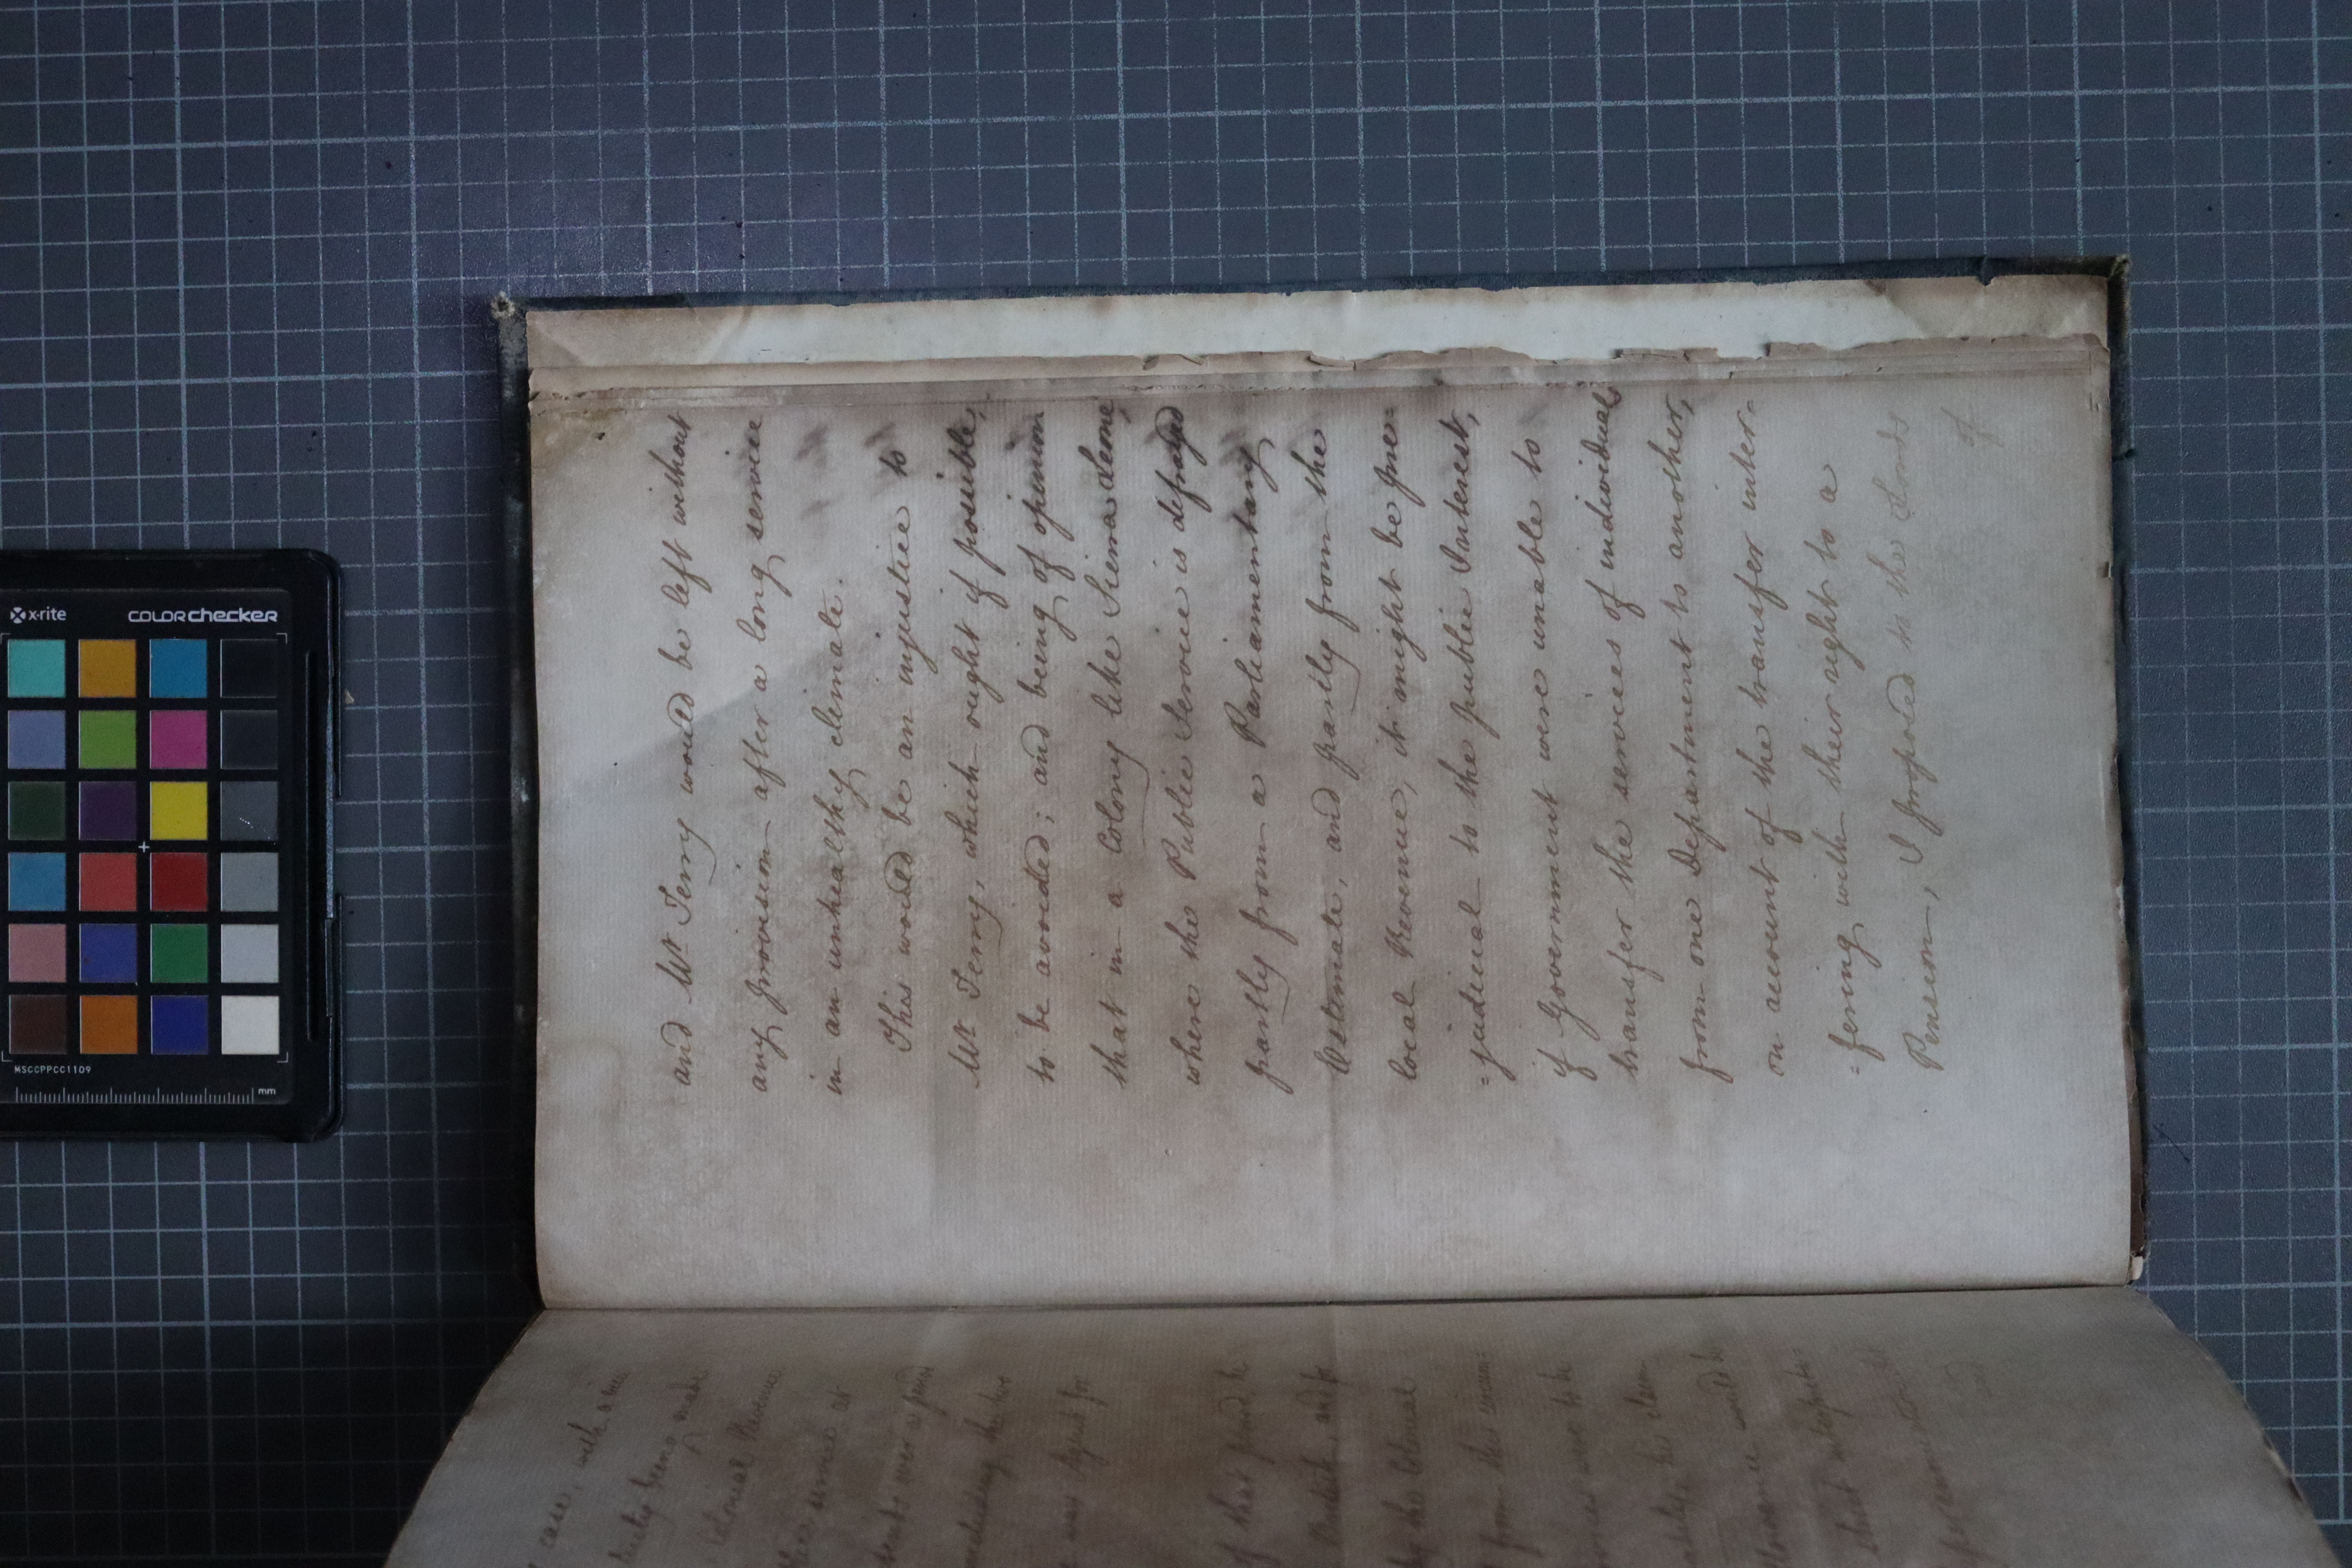 and Mr Terry would be left without
any provision after a long service
in an unhealthy climate.
This would be an injustice to
Mr Terry, which ought if possible,
to be avoided; and being of opinion
that in a Colony like Sierra Leone,
where the Public Service is defrayed
partly from a Parliamentary
Estimate, and partly from the
local Revenue, it might be pre=
=judicial to the public Interest,
if Government were unable to
transfer the services of individuals
from one Department to another,
on account of the transfer inter=
=fering with their right to a
Pension, I proposed to the Lords
of
case, with a
been made
Colonial Revenue
service
of that
and for
by the Colonial
from the
were to be
would be
that
and
x-rite
COLORchecker
MSCCPPCC1109
mm